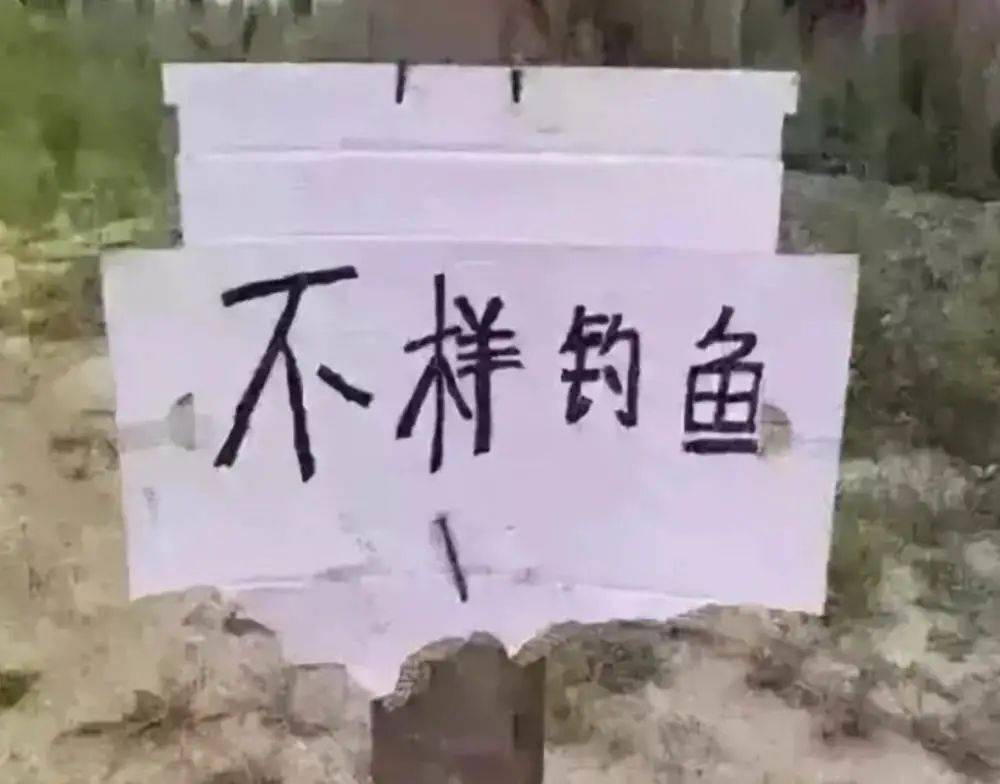 不样钓鱼